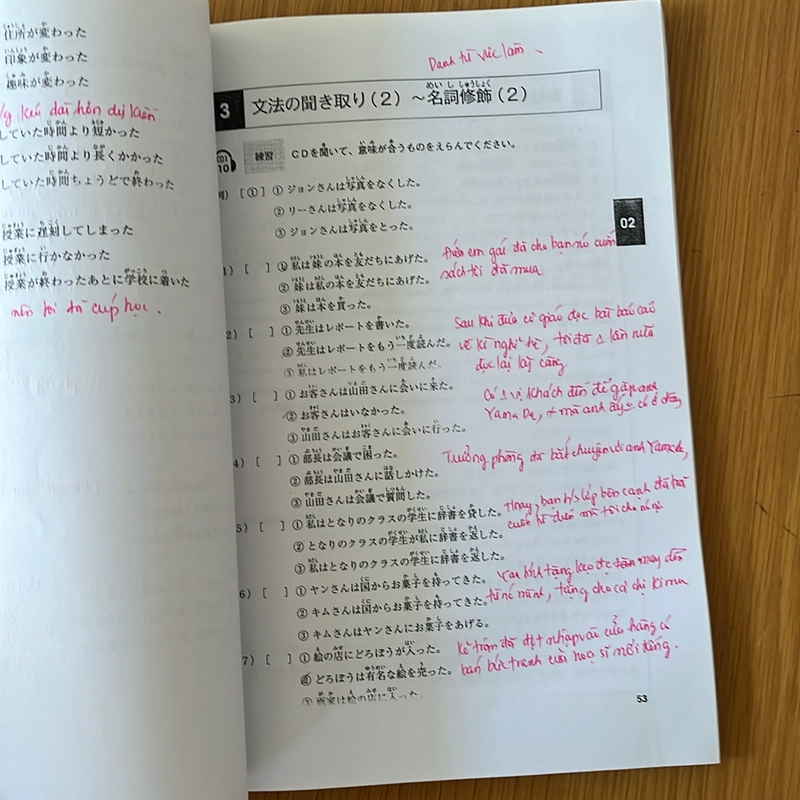 住所が変わった
印象が変わった
趣味が変わった
kéo dài hơn dự kiến
していた時間より短かった
していた時間より長くかかった
していた時間ちょうどで終わった
授業に遅刻してしまった
授業に行かなかった
授業が終わったあとに学校に着いた
nên tôi đã cúp học.
Danh từ việc làm
3 文法の聞き取り(2) ~名詞修飾(2)
CD1 10 練習 CDを聞いて、意味が合うものをえらんでください。
例) [①] ① ジョンさんは写真をなくした。
② リーさんは写真をなくした。
③ ジョンさんは写真をとった。
02
1) [ ] ① 私は妹の本を友だちにあげた。
② 妹は私の本を友だちにあげた。
③ 妹は本を買った。
Đứa em gái đã cho bạn nó cuốn
sách tôi đã mua
2) [ ] ① 先生はレポートを書いた。
② 先生はレポートをもう一度読んだ。
③ 私はレポートをもう一度読んだ。
Sau khi đưa cô giáo đọc bài báo cáo
về kì nghỉ hè, tôi đã 1 lần nữa
đọc lại kỹ càng
3) [ ] ① お客さんは山田さんに会いに来た。
② お客さんはいなかった。
③ 山田さんはお客さんに会いに行った。
Có 1 vị khách đến để gặp anh
Yamada, mà anh ấy có ở đây
4) [ ] ① 部長は会議で困った。
② 部長は山田さんに話しかけた。
③ 山田さんは会議で質問した。
Trưởng phòng đã bắt chuyện với anh Yamada,
5) [ ] ① 私はとなりのクラスの学生に辞書を貸した。
② となりのクラスの学生が私に辞書を返した。
③ 私はとなりのクラスの学生に辞書を返した。
nay, bạn h/s lớp bên cạnh đã trả
cuốn từ điển mà tôi cho nó
6) [ ] ① ヤンさんは国からお菓子を持ってきた。
② キムさんは国からお菓子を持ってきた。
③ キムさんはヤンさんにお菓子をあげる。
tặng kẹo
từ nó mình, tặng cho cả chị Kimu
7) [ ] ① 絵の店にどろぼうが入った。
② どろぼうは有名な絵を売った。
③ 画家は絵の店に入った。
Kẻ trộm đã đột nhập vào cửa hàng có
bán bức tranh của hoạ sĩ nổi tiếng.
53